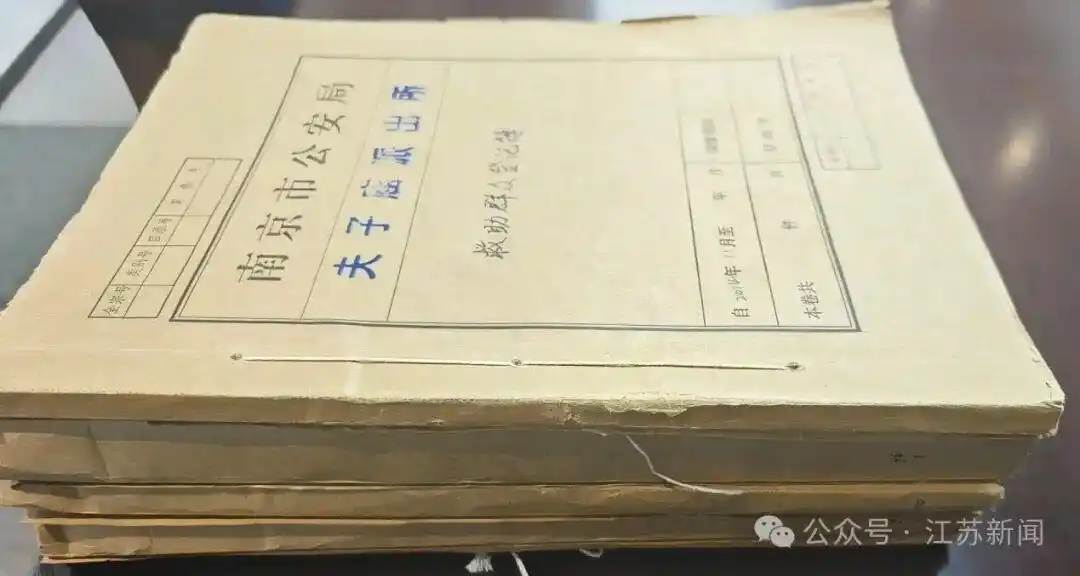 南京市公安局
夫子庙派出所
救助群众登记簿
自2016年11月至 年 月
本卷共 件 页
全宗号 类别号 目录号 案卷号
公众号·江苏新闻